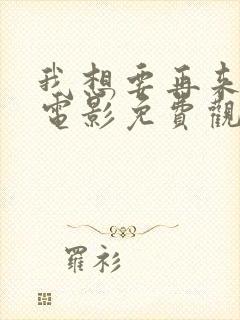 我想要再来
電影免費觀
羅衫